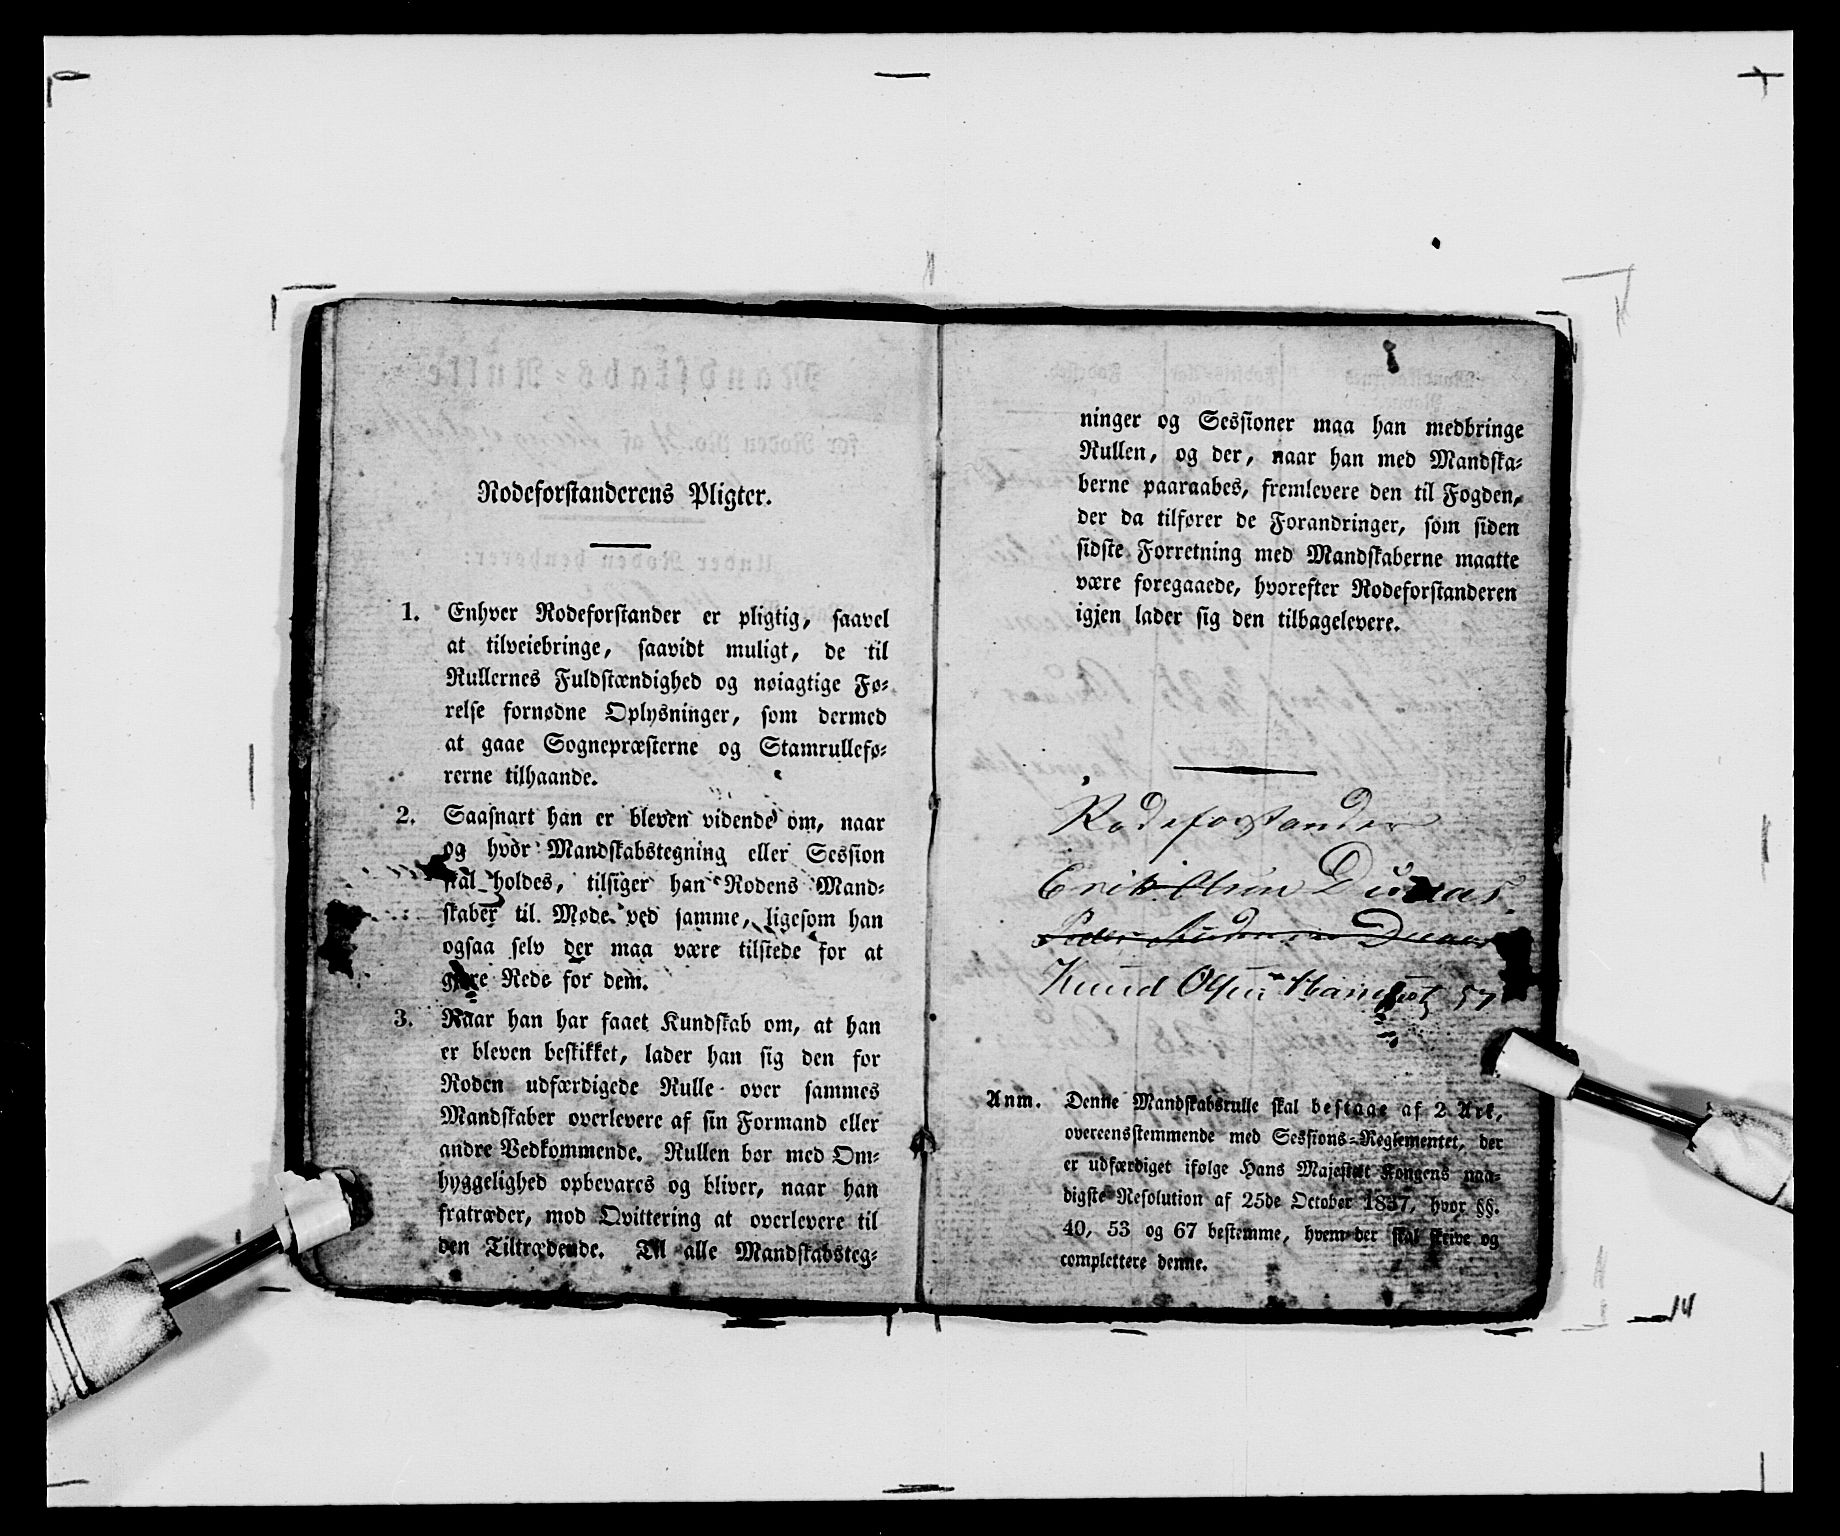 Rodeforstanderens Pligter.
1. Enhver Rodeforstander er pligtig, saavel
at tilveiebringe, saavidt muligt, de til
Rullernes Fuldstændighed og nøiagtige Fø-
relse fornødne Oplysninger, som dermed
at gaae Sognepræsterne og Stamrullefø-
rerne tilhaande.
2. Saasnart han er bleven vidende om, naar
og hvor Mandskabstegning eller Session
skal holdes, tilsiger han Rodens Mand-
skaber til Møde ved samme, ligesom han
ogsaa selv der maa være tilstede for at
gjøre Rede for dem.
3. Naar han har faaet Kundskab om, at han
er bleven beskikket, lader han sig den for
Roden udfærdigede Rulle over sammes
Mandskaber overlevere af sin Formand eller
andre Vedkommende. Rullen bør med Om-
hyggelighed opbevares og bliver, naar han
fratræder, mod Qvittering at overlevere til
den Tiltrædende. Til alle Mandskabsteg-
ninger og Sessioner maa han medbringe
Rullen, og der, naar han med Mandska-
berne paaraabes, fremlevere den til Fogden,
der da tilfører de Forandringer, som siden
sidste Forretning med Mandskaberne maatte
være foregaaede, hvorefter Rodeforstanderen
igjen lader sig den tilbagelevere.
Rodeforstander
Erik Olsen
Peder
Knud Olsen 57
Anm. Denne Mandskabsrulle skal bestaae af 2 Ark,
overeensstemmende med Sessions-Reglementet, der
er udfærdiget ifølge Hans Majestæt Kongens naa-
digste Resolution af 25de October 1837, hvor §§.
40, 53 og 67 bestemme, hvem der skal skrive og
complettere denne.
14